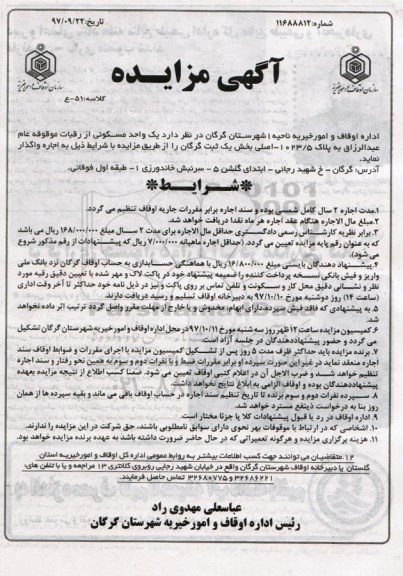 شماره: ۱۱۶۸۸۸۱۲
تاریخ: ۹۷/۰۹/۲۲
سازمان اوقاف و امور خیریه
سازمان اوقاف و امور خیریه
آگهی مزایده
کلاسه: ۵۱-ع
اداره اوقاف و امور خیریه ناحیه ۱ شهرستان گرگان در نظر دارد یک واحد مسکونی از رقبات موقوفه عام
عبدالرزاق به پلاک ۱۰۲۳/۵-اصلی بخش یک ثبت گرگان را از طریق مزایده با شرایط ذیل به اجاره واگذار
نماید.
آدرس: گرگان - خ شهید رجایی - ابتدای گلشن ۵ - سرنبش خاندورزی ۱- طبقه اول فوقانی.
*شرایط*
۱.مدت اجاره ۲ سال کامل شمسی بوده و سند اجاره برابر مقررات جاریه اوقاف تنظیم می گردد.
۲.مبلغ مال الاجاره هنگام عقد اجاره هر ماه نقدا دریافت خواهد شد.
۳. برابر نظریه کارشناس رسمی دادگستری حداقل مال الاجاره برای مدت ۲ سال مبلغ ۱۶۸/۰۰۰/۰۰۰ ریال می باشد
که به عنوان رقم پایه مزایده تعیین می گردد. (حداقل اجاره ماهیانه ۷/۰۰۰/۰۰۰ ریال که پیشنهادات از رقم مذکور شروع
می شود).
۴.پیشنهاد دهندگان بایستی مبلغ ۱۶/۸۰۰/۰۰۰ ریال با هماهنگی حسابداری به حساب اوقاف گرگان نزد بانک ملی
واریز و فیش بانکی نسخه پرداخت کننده را ضمیمه پیشنهاد خود در پاکت لاک و مهر شده با تعیین دقیق رقبه مورد
نظر و نشانی دقیق محل کار و سکونت و تلفن تماس بر روی پاکت و نیز در ذیل نامه خود حداکثر تا آخر وقت اداری
(ساعت ۱۴) روز دوشنبه مورخ ۹۷/۱۰/۱۰ به دبیرخانه اوقاف تسلیم و رسید دریافت دارند.
۵. به پیشنهادی که فاقد فیش سپرده، دارای ابهام، مخدوش و یا خارج از مهلت مقرر واصل گردد ترتیب اثر داده نخواهد
شد.
۶.کمیسیون مزایده ساعت ۱۲ ظهر روز سه شنبه مورخ ۹۷/۱۰/۱۱ در محل اداره اوقاف و امور خیریه شهرستان گرگان تشکیل
می گردد و حضور پیشنهاددهندگان در جلسه آزاد است.
۷. برنده مزایده باید حداکثر ظرف مدت ۵ روز پس از تشکیل کمیسیون مزایده با اجرای مقررات و ضوابط اوقاف سند
اجاره منعقد نماید در غیر این صورت سپرده او برابر مقررات ضبط و با نفرات دوم و سوم به همین نحو رفتار و سند اجاره
تنظیم خواهد شد و ضرب الاجل آن در اعلام کتبی اوقاف تعیین می شود. ضمنا کسب اطلاع از نتیجه مزایده بعهده
پیشنهاددهندگان بوده و اوقاف الزامی به ابلاغ نتایج نخواهد داشت.
۸. سپرده نفرات دوم و سوم برنده تا تاریخ تنظیم سند اجاره در حساب اوقاف باقی می ماند و بقیه سپرده ها از همان
روز بنا به درخواست ذینفع مسترد خواهد شد.
۹. اداره اوقاف در رد یا قبول پیشنهادات کلا یا جزئا مختار است.
۱۰. اشخاصی که در ارتباط با موقوفات بهر نحوی دارای سوابق نامطلوبی باشند، حق شرکت در این مزایده را ندارند.
۱۱. هزینه برگزاری مزایده و هرگونه تعمیراتی که در حال حاضر ضرورت داشته باشد به عهده برنده مزایده خواهد بود.
۱۲.متقاضیان می توانند جهت کسب اطلاعات بیشتر به روابط عمومی اداره کل اوقاف و امور خیریه استان
گلستان یا دبیرخانه اوقاف شهرستان گرگان واقع در خیابان شهید رجایی روبروی کلانتری ۱۳ مراجعه و یا با تلفن های،
۳۲۶۸۶۲۲۱ و ۳۲۶۸۰۷۷۵ تماس حاصل فرمایند.
عباسعلی مهدوی راد
رئیس اداره اوقاف و امور خیریه شهرستان گرگان